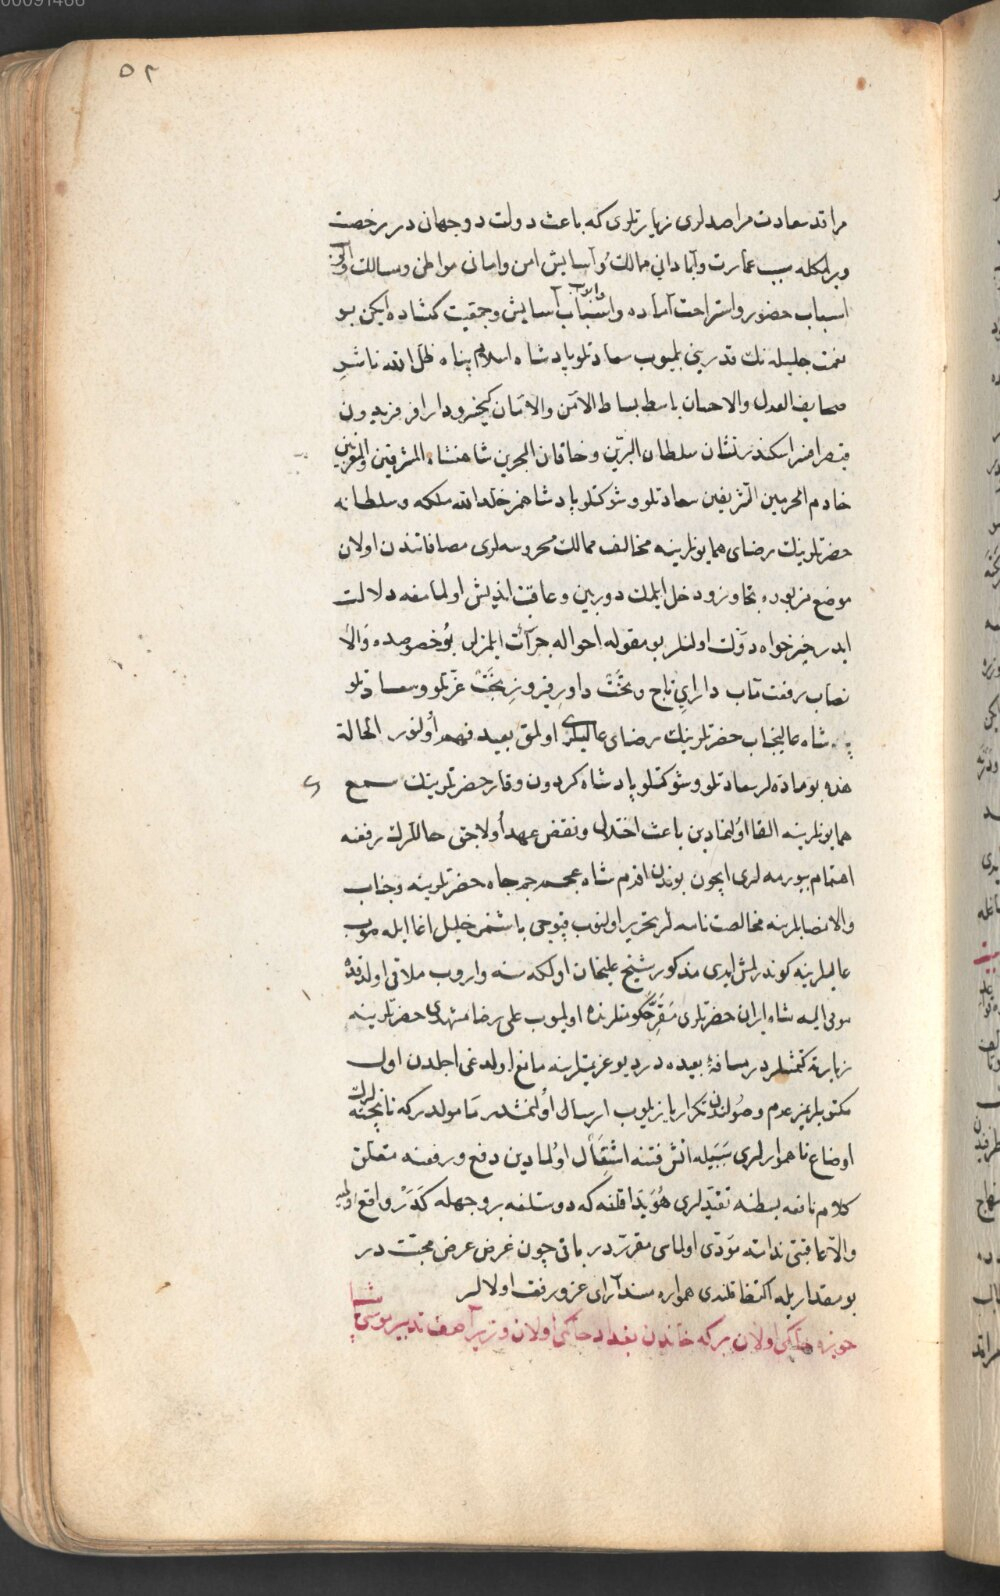 00091466
٥٢
مراتد سعادت مراصدلری زیارتلری که باعث دولت دوجهان در رخصت
وبر لکله سبب عمارت وآبادانی ممالک وآسایش امن وامانی مواطن ومسالک
اسباب حضور واستراحت آماده واسباب آسایش وجمعیت کشاده ایکن بو
وابواب
نعمت جلیله نک قدرینی بلمیوب سعادتلو پادشاه اسلام پناه ظل الله ناشر
صحایف العدل والاحسان باسط بساط الامن والامان کیخسرو دارا فر فریدون
قیصر افسر اسکندر نشان سلطان البرین وخاقان البحرین شاهنشاه المشرقین والمغربین
خادم الحرمین الشریفین سعادتلو وشوکتلو پادشاهمز خلد الله ملکه وسلطانه
حضرتلرینک رضای همایونلرینه مخالف ممالک محروسه لری مضافاتندن اولان
موضع مزبوره تجاوز ودخل ایلمک دوربین وعاقبت اندیش اولمامغه دلالت
ایدر خیر خواه دولت اولنلر بو مقوله احواله جرأت ایلمزلر بو خصوصده والا
نصاب رفعت مآب دارای تاج وتخت داور فیروز بخت عزتلو وسعادتلو
شاه عالیجناب حضرتلرینک رضای عالیلری اولمق بعید فهم اولنور الحالة
هذه بو ماده لر سعادتلو وشوکتلو پادشاه کردون وقار حضرتلرینک سمع
همایونلرینه القا اولنمادین باعث اختلال ونقض عهد اولاجق حاللرک رفعنه
اهتمام بیورمه لری ایچون بوندن اقدم شاه عجم جمجاه حضرتلرینه وجناب
والا نصابلرینه مخالصت نامه لر تحریر اولنوب قپوجی باشمز خلیل اغا ایله صوب
عالیلرینه کوندرلمش ایدی مذکور شیخ علیخان اولکه سنه واروب ملاقی اولدقده
مومی الیه شاه ایران حضرتلری مقر حکومتلرنده اولمیوب علی رضا مشهدی حضرتلرینه
زیارته کتمشلردر مسافهٔ بعیده در دیو عزیمتلرینه مانع اولدغی اجلدن اول
مکتوبلریمز عدم وصولندن تکرار یازیلوب ارسال اولنمشدر مأمولدر که
اوضاع ناهموارلری سببیله آتش فتنه اشتعال اولمادین دفع ورفعنه متعلق
کلام نافعه بسطنه تقیدلری هویدا قلنه که دوستلغه بر وجهله کدر واقع اولمیه
والا عاقبتی ندامته مؤدی اولماسی مقرر در باقی چون غرض عرض محبت در
بو مقدار ایله اکتفا قلندی همواره مسند آرای عز ورفعت اولالر
حویزه حاکمی اولان برکه خاندن بغداد حاکمی اولان وزیر آصف تدبیر موسی پاشا